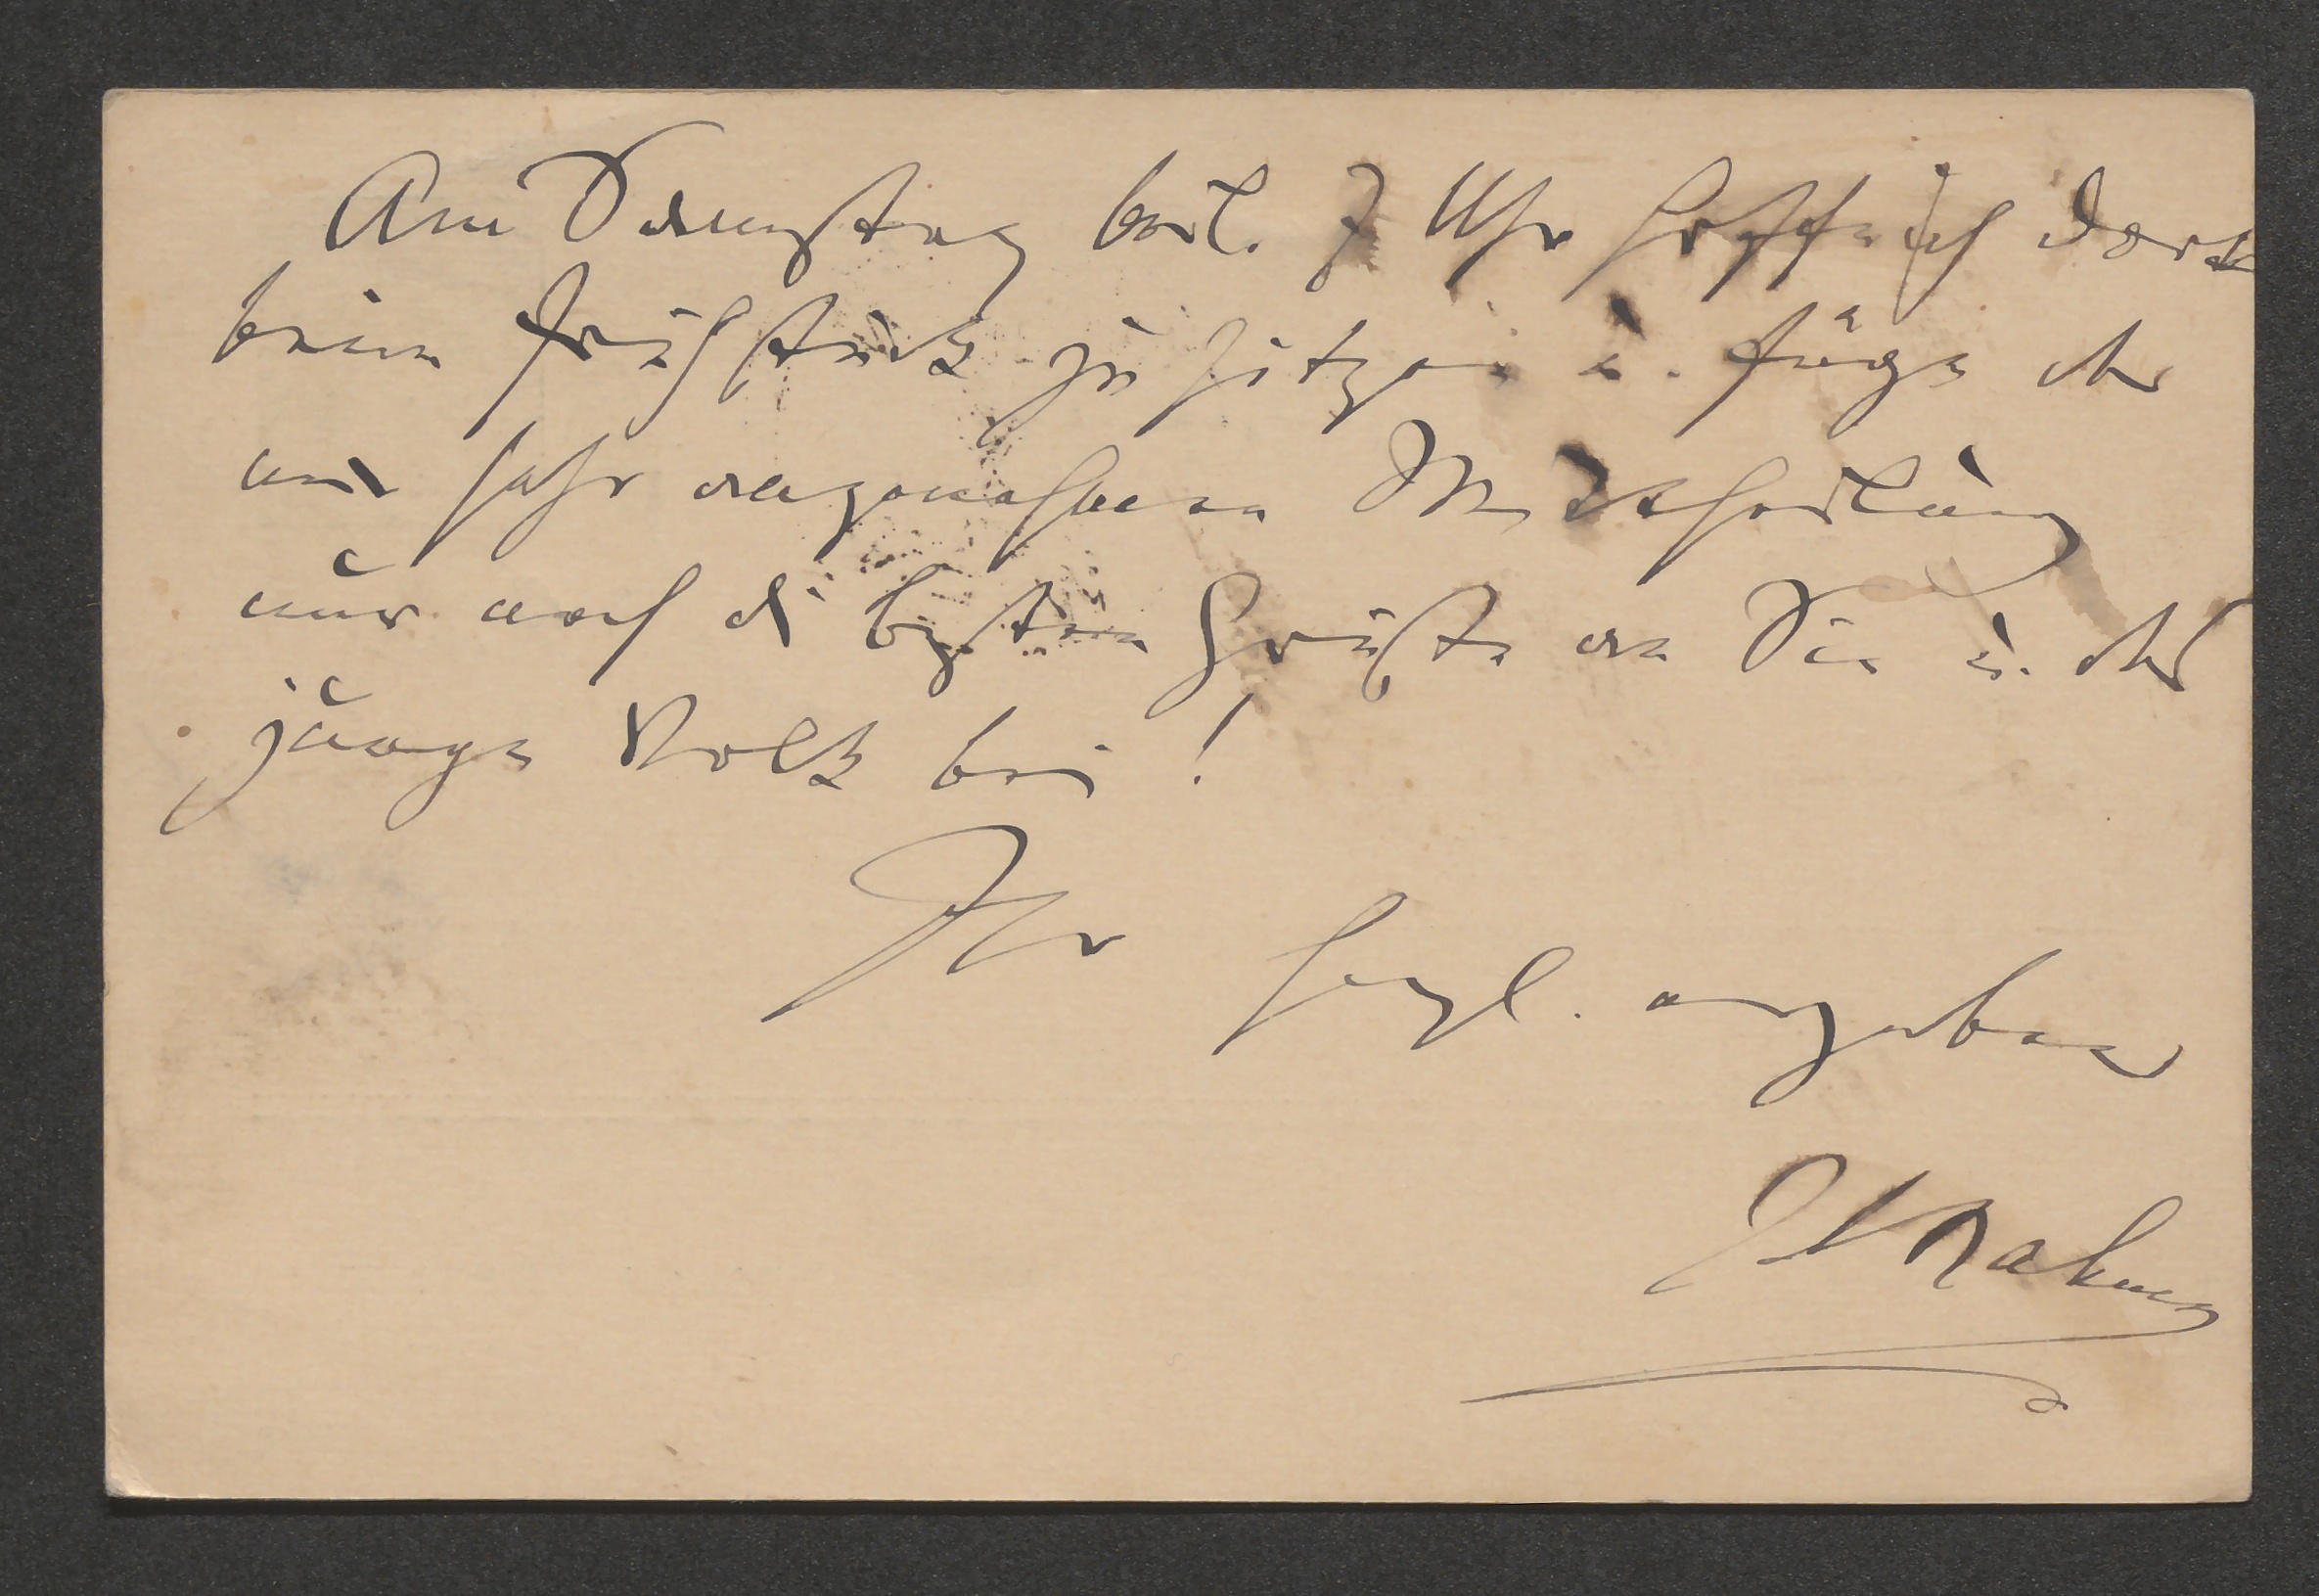 Am Dienstag beil. 7 Uhr hoffe ich dort
beim Frühstück zu sitzen u. füge der
mir sehr angenehmen Mittheilung
nur noch die besten Grüße an Sie u. das
junge Volk bei!
Ihr herzl. ergebener
J Brahms